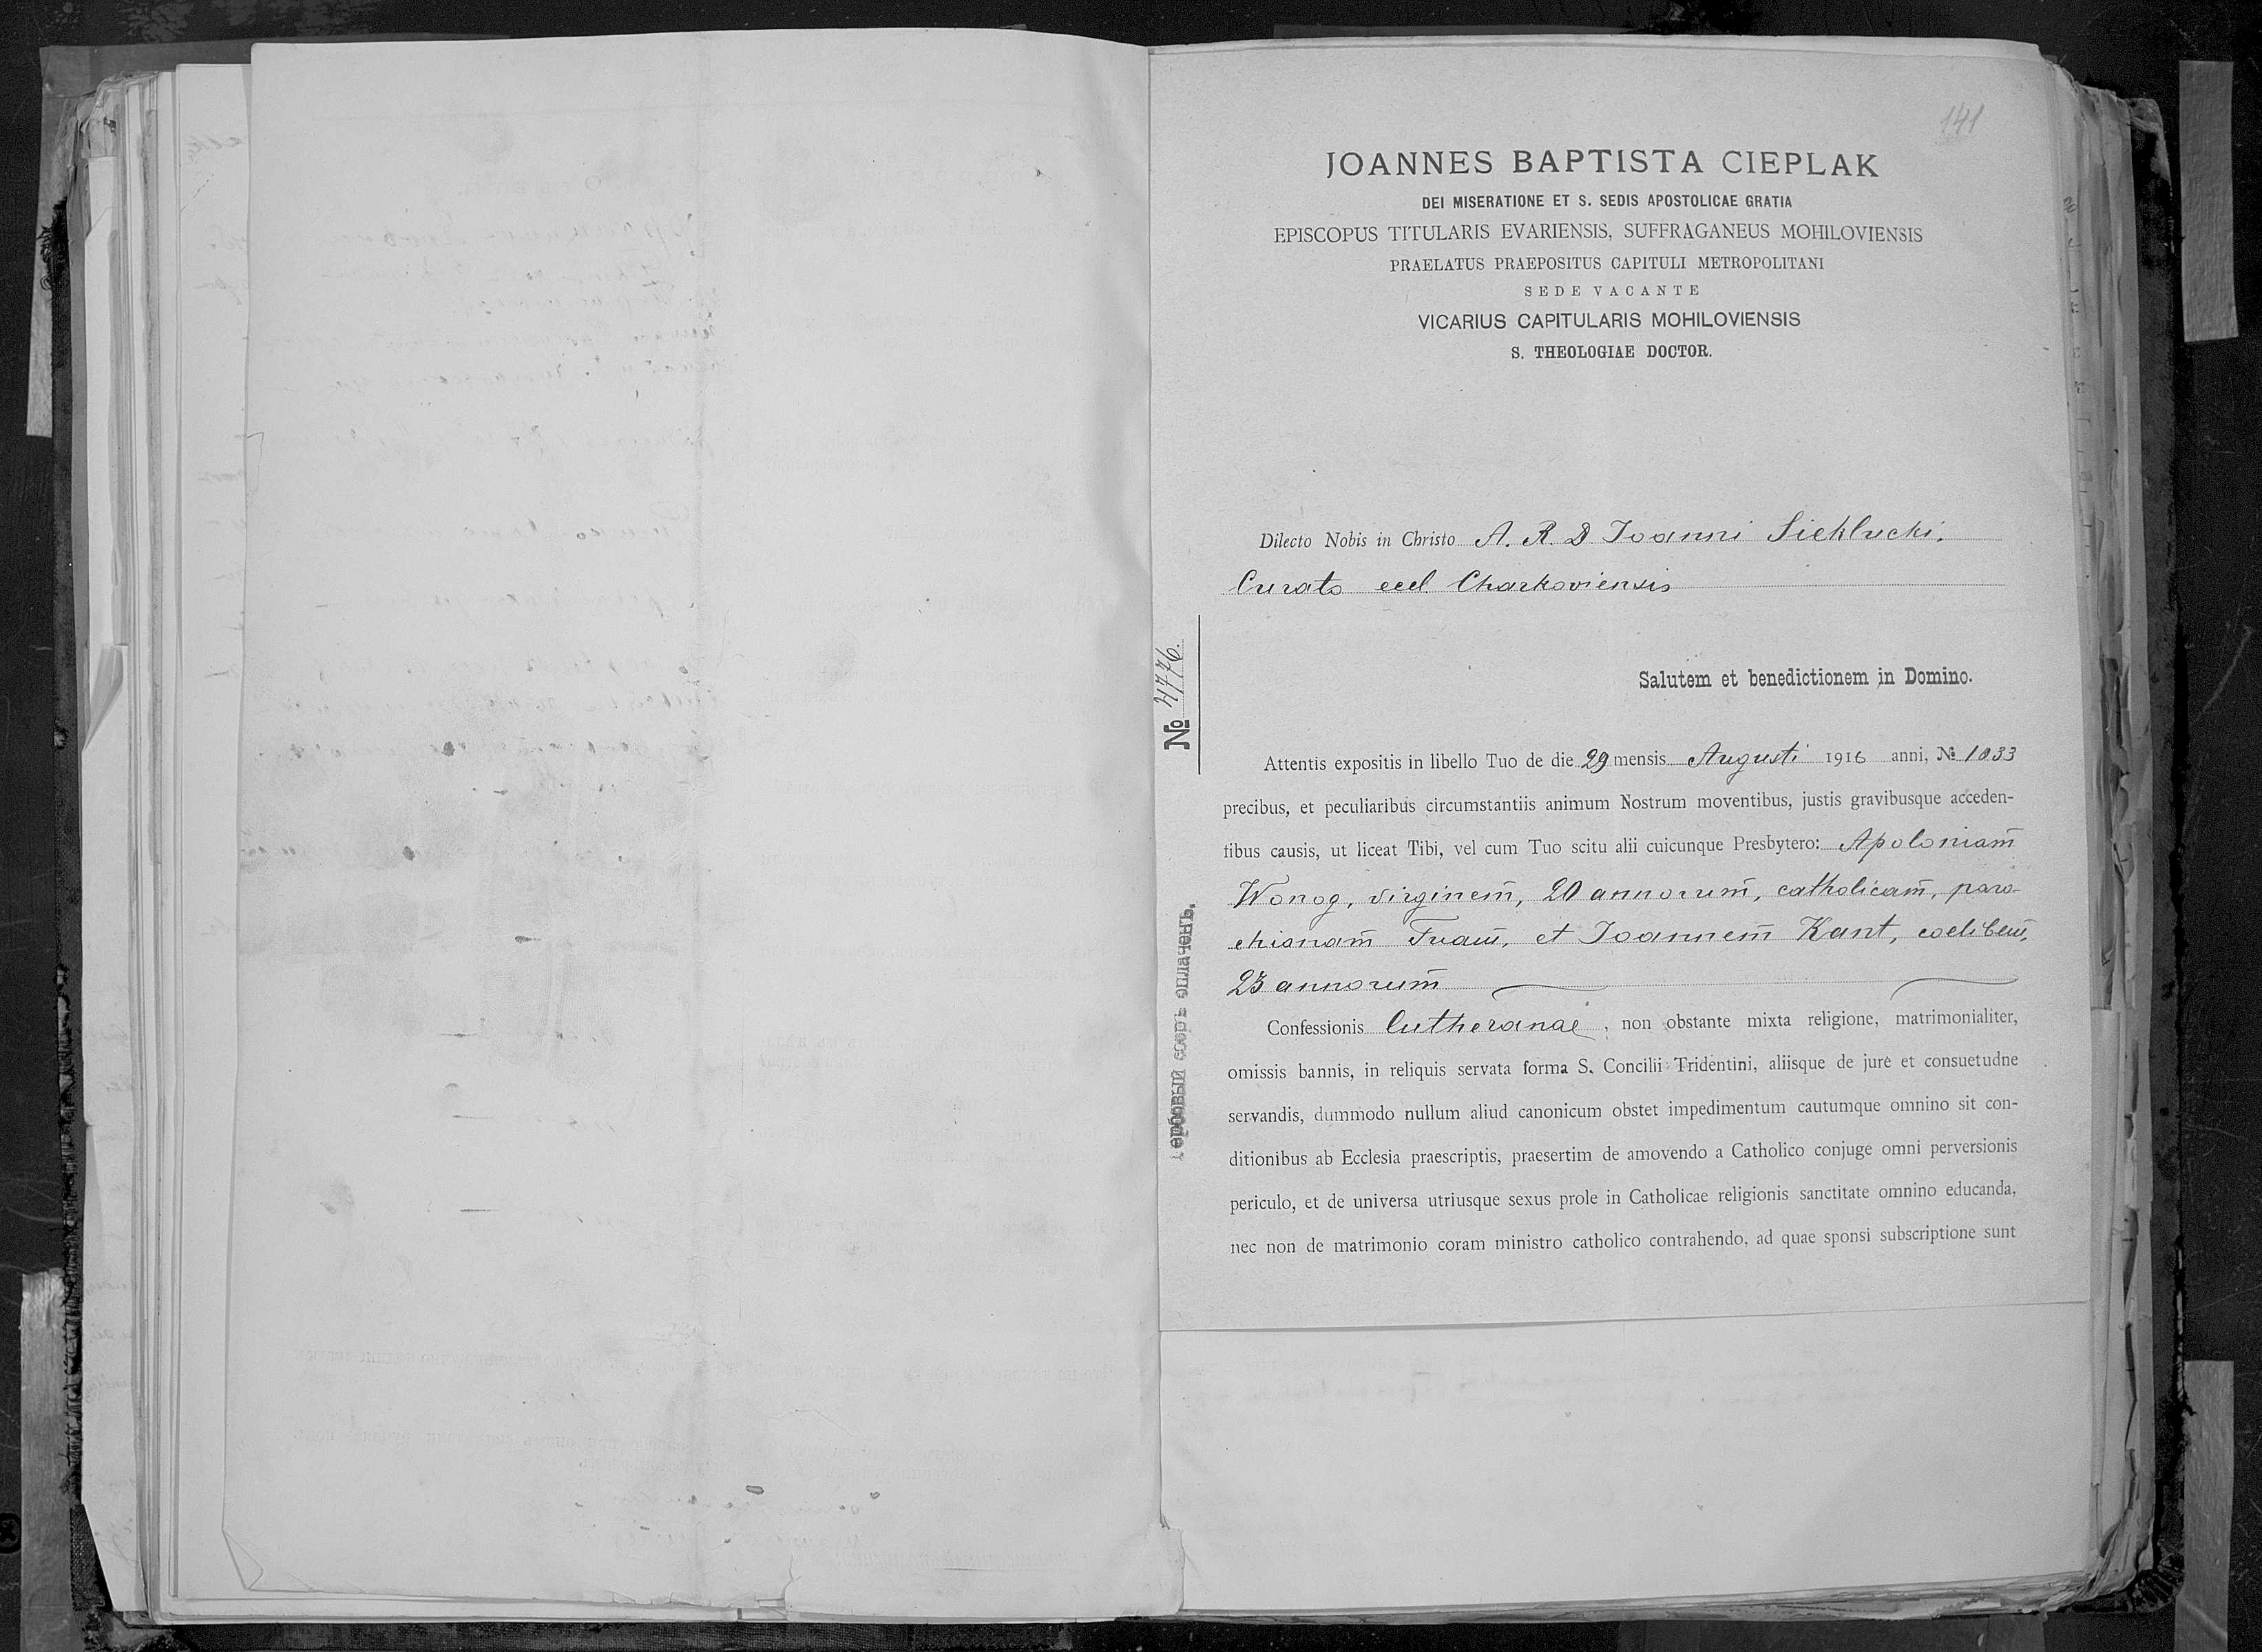 141
JOANNES BAPTISTA CIEPLAK
DEI MISERATIONE ET S. SEDIS APOSTOLICAE GRATIA
EPISCOPUS TITULARIS EVARIENSIS, SUFFRAGANEUS MOHILOVIENSIS
PRAELATUS PRAEPOSITUS CAPITULI METROPOLITANI
SEDE VACANTE
VICARIUS CAPITULARIS MOHILOVIENSIS
S. THEOLOGIAE DOCTOR.
Dilecto Nobis in Christo A. R. D Joanni Sieklucki.
Curato eccl. Charkoviensis
№ 4776.
Salutem et benedictionem in Domino.
Attentis expositis in libello Tuo de die 29 mensis Augusti 1916 anni, № 1033
precibus, et peculiaribus circumstantiis animum Nostrum moventibus, justis gravibusque acceden-
tibus causis, ut liceat Tibi, vel cum Tuo scitu alii cuicunque Presbytero: Apoloniam̄
Wonog, virginem̄, 20 annorum̄, catholicam̄, paro-
chianam̄ Tuam̄, et Joannem̄ Kant, coelibem̄,
23 annorum̄
Confessionis lutheranae, non obstante mixta religione, matrimonialiter,
omissis bannis, in reliquis servata forma S. Concilii Tridentini, aliisque de jure et consuetudne
servandis, dummodo nullum aliud canonicum obstet impedimentum cautumque omnino sit con-
ditionibus ab Ecclesia praescriptis, praesertim de amovendo a Catholico conjuge omni perversionis
periculo, et de universa utriusque sexus prole in Catholicae religionis sanctitate omnino educanda,
nec non de matrimonio coram ministro catholico contrahendo, ad quae sponsi subscriptione sunt
Гербовый сборъ оплаченъ.